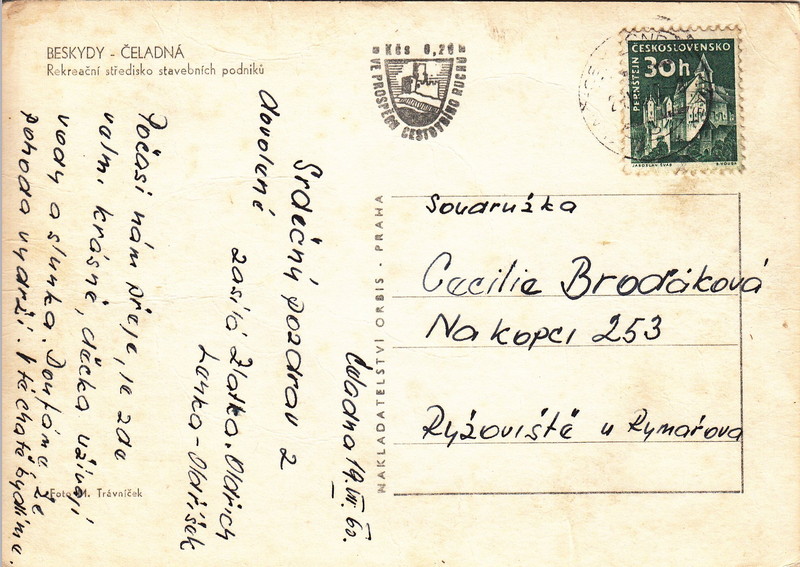 BESKYDY - ČELADNÁ
Rekreační středisko stavebních podniků
Kčs 0,20
VE PROSPĚCH CESTOVNÍHO RUCHU
ČESKOSLOVENSKO
30h
PERNŠTEJN
JAROSLAV ŠVÁB
Čeladná 19.VII.60.
Srdečný pozdrav z
dovolené
zasílá Zlatka. Oldřich
Lenka-Oldříšek
Počasí nám přeje, je zde
velmi krásně, děcka užívají
vody a slunka. Doufáme že
pohoda vydrží. V téchatě bydlíme.
NAKLADATELSTVÍ ORBIS - PRAHA
Soudružka
Cecilie Broďáková
Na kopci 253
Ryžoviště u Rymařova
Foto M. Trávníček